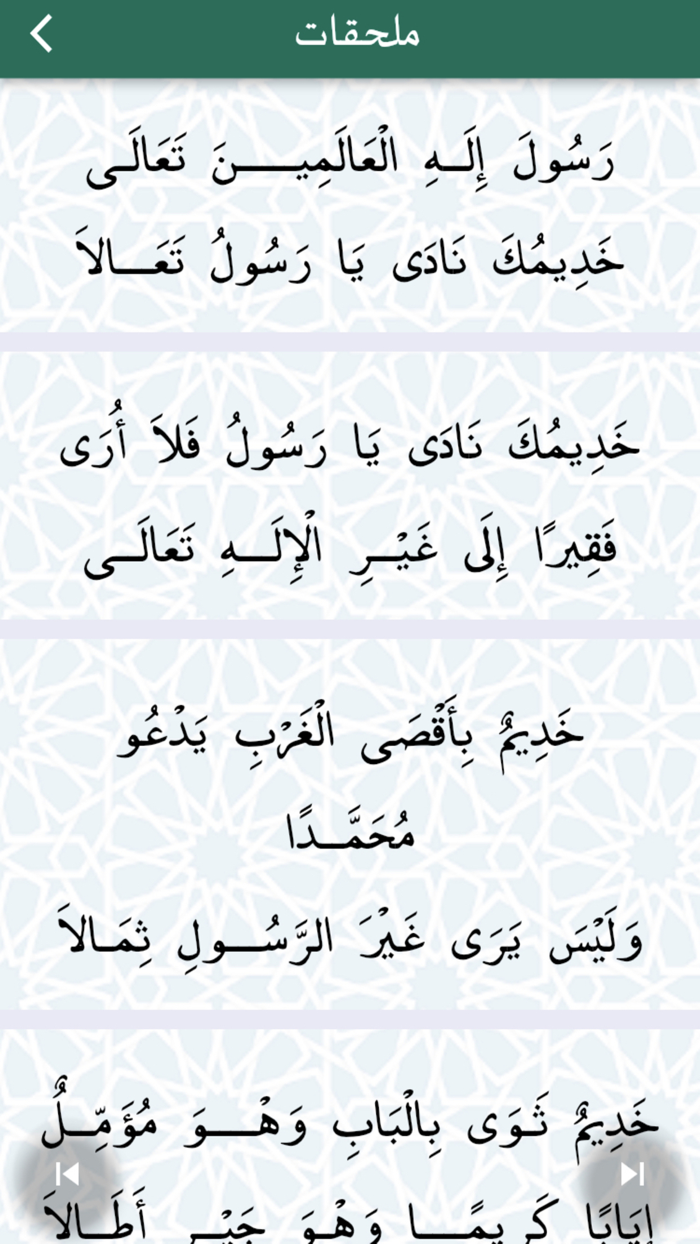 ملحقات
رَسُولَ إِلَـهِ الْعَالَمِيـــنَ تَعَالَـى
خَدِيمُكَ نَادَى يَا رَسُولُ تَعَـــالاَ
خَدِيمُكَ نَادَى يَا رَسُولُ فَلاَ أُرَى
فَقِيرًا إِلَى غَيْـرِ الْإِلَـــهِ تَعَالَــى
خَدِيمٌ بِأَقْصَى الْغَرْبِ يَدْعُو
مُحَمَّــدًا
وَلَيْسَ يَرَى غَيْرَ الرَّسُـــولِ ثِمَــالاَ
خَدِيمٌ ثَـوَى بِالْبَابِ وَهْـــوَ مُؤَمِّــلٌ
إِيَابًا كَرِيمًـــا وَهْـوَ جَيْــرِ أَطَــالاَ